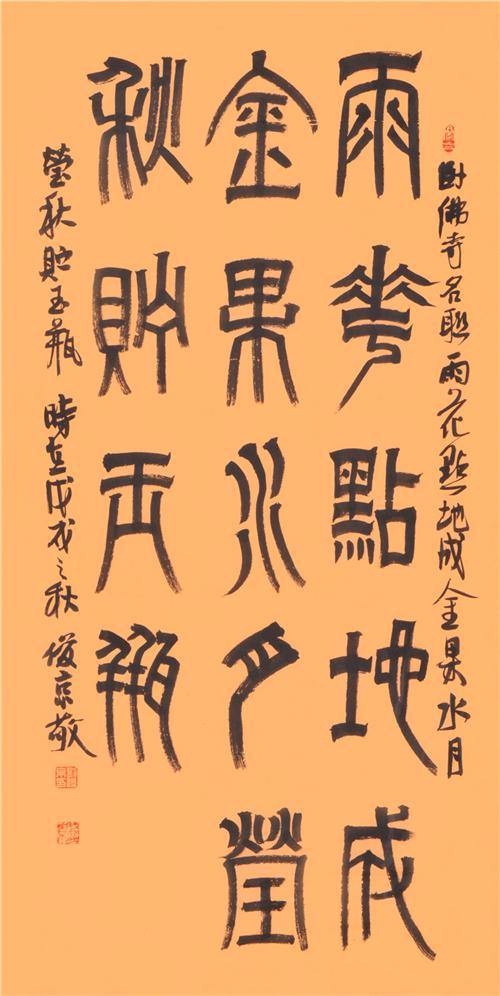 卧佛寺名聯雨花點地成金果水月
雨華點地成
金果水月瑩
秋貯玉瓶
瑩秋貯玉瓶 時在戊戌之秋 俊京敬